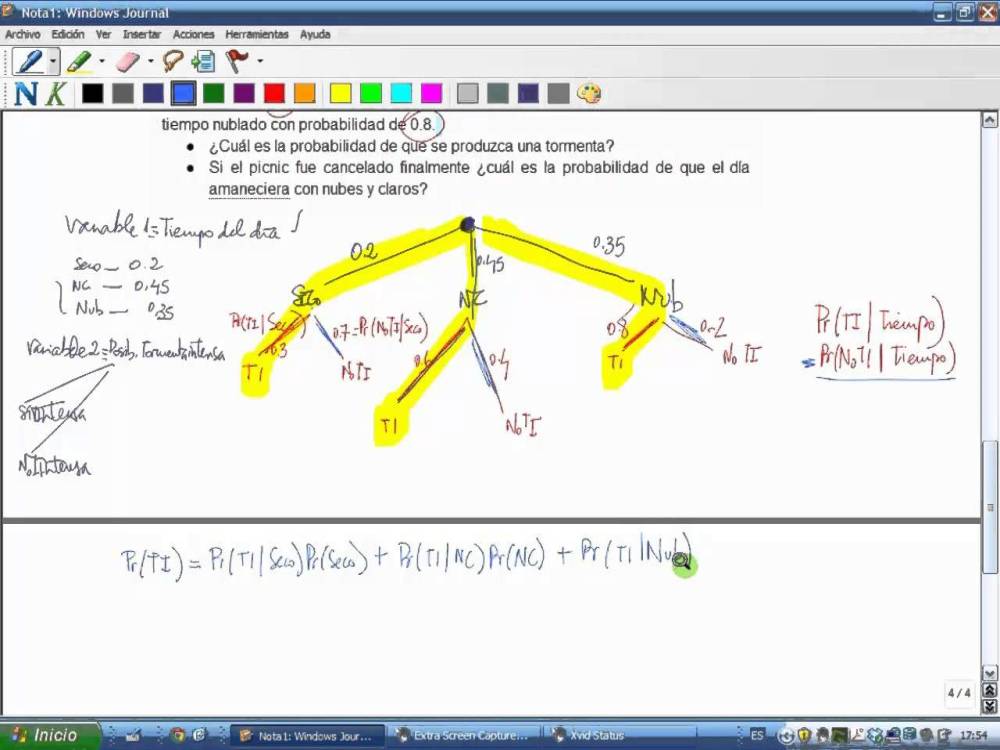 Nota1: Windows Journal
Archivo Edición Ver Insertar Acciones Herramientas Ayuda
N K
tiempo nublado con probabilidad de 0.8.
• ¿Cuál es la probabilidad de que se produzca una tormenta?
• Si el picnic fue cancelado finalmente ¿cuál es la probabilidad de que el día
amaneciera con nubes y claros?
Variable 1 = Tiempo del día
Seco — 0.2
NC — 0.45
Nub — 0.35
Variable 2 = Posib. Tormenta intensa
Si Intensa
No Intensa
0.2 0.45 0.35
Seco NC Nub
Pr(TI | Seco) 0.7 = Pr(NoTI | Seco) 0.8 0.2
0.3 0.6 0.4
TI NoTI TI NoTI
TI NoTI
Pr(TI | Tiempo)
Pr(NoTI | Tiempo)
Pr(TI) = Pr(TI | Seco)Pr(Seco) + Pr(TI | NC)Pr(NC) + Pr(TI | Nub)
4 / 4
Inicio Nota1: Windows Jour... Extra Screen Capture... Xvid Status ES 17:54